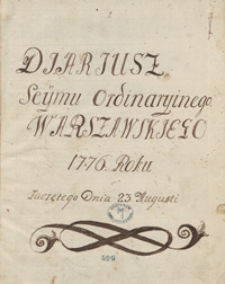 DIARIUSZ
Seÿmu Ordinaryinego
WARSZAWSKIEGO
1776. Roku
Zaczętego Dnia 23 Augusti